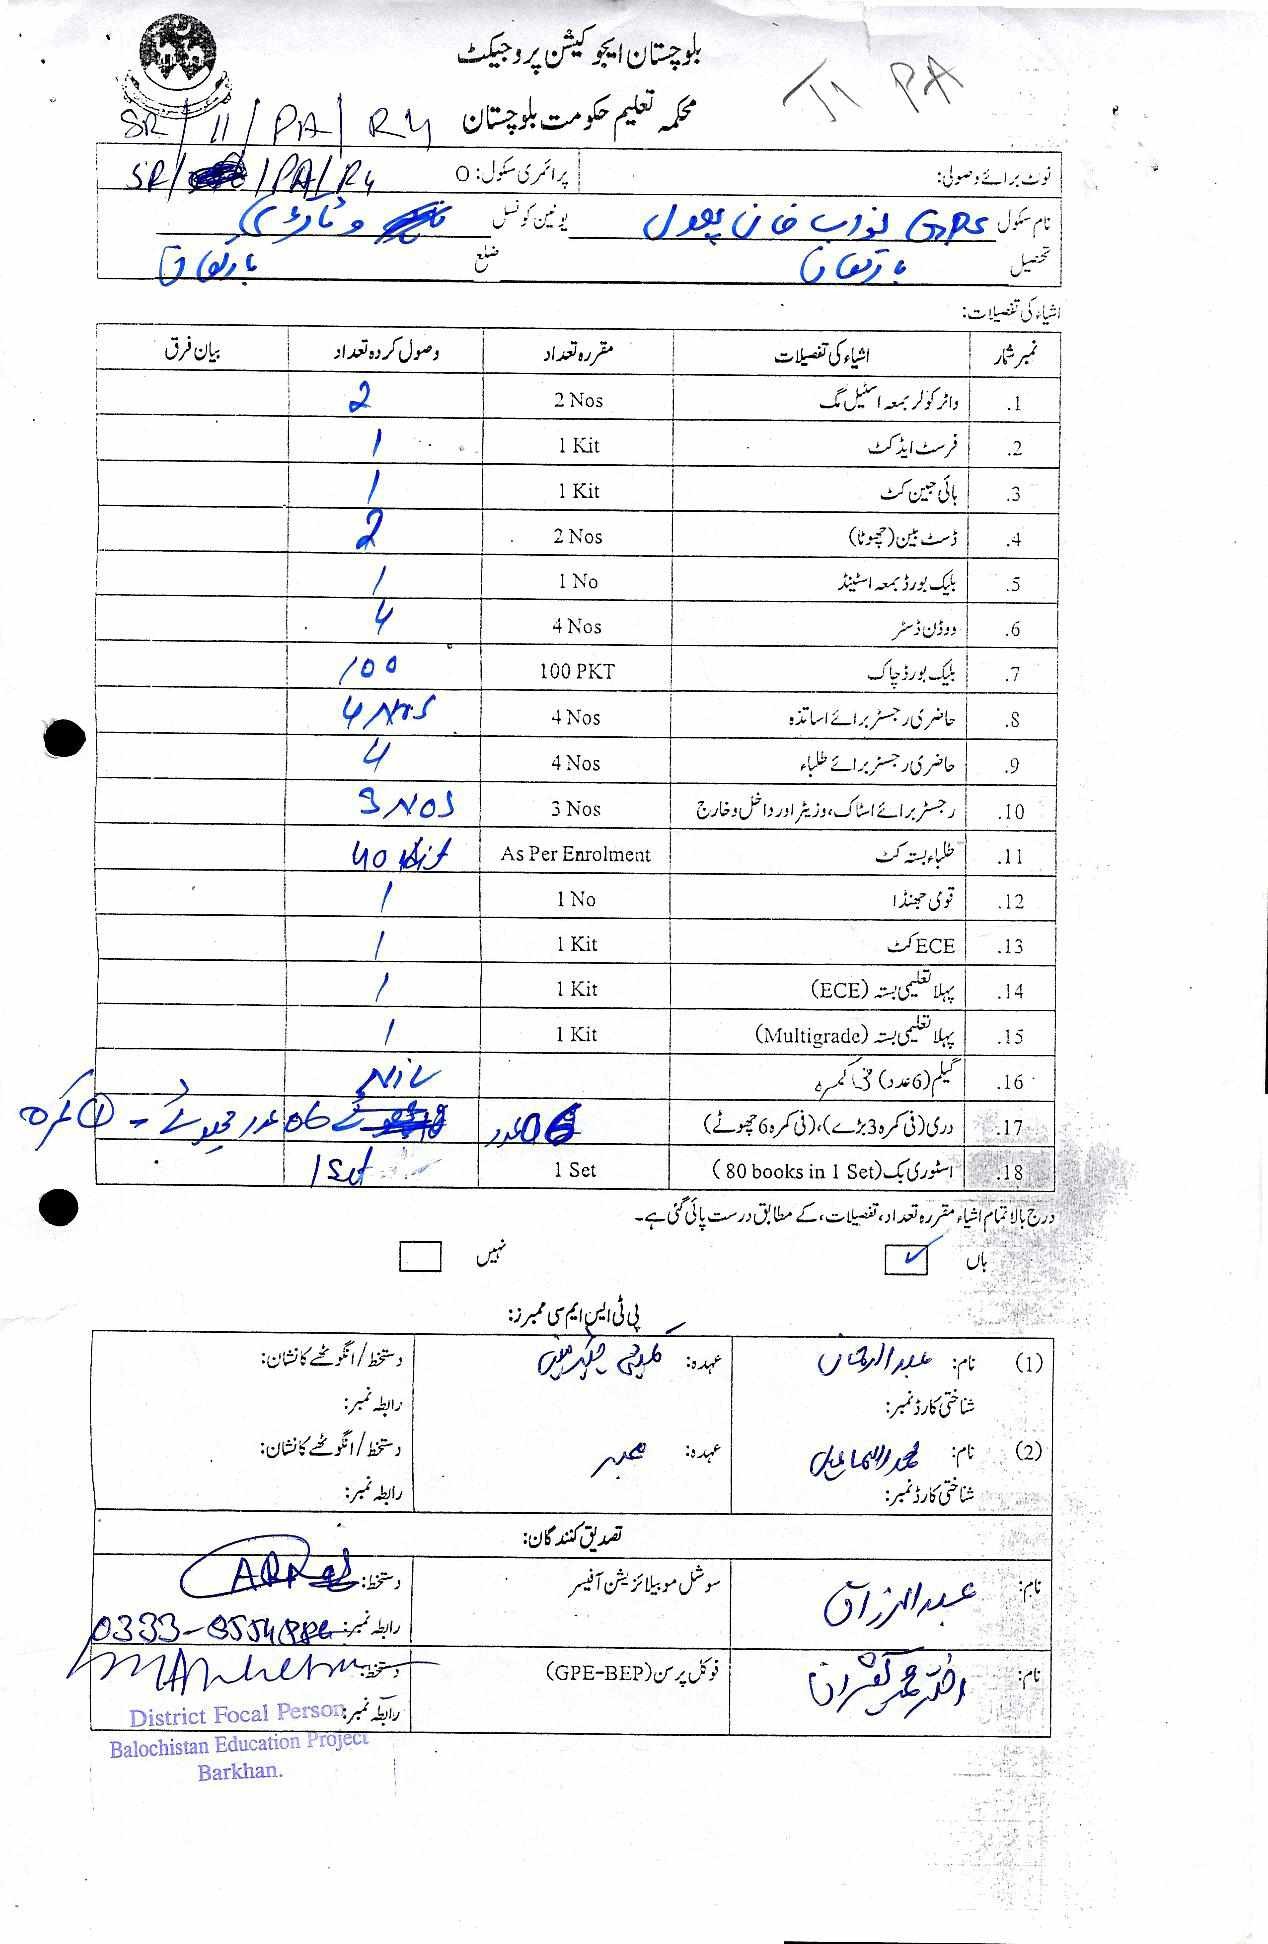 بلوچستان ایجوکیشن پروجیکٹ
JI PA
محکمہ تعلیم حکومت بلوچستان
SR/11/PA/RY
نوٹ برائے وصولی: پرائمری سکول: O SR/ /PA/RY
نام سکول GPS نواب خان یونین کونسل
تحصیل بارکھان ضلع بارکھان
اشیاء کی تفصیلات:
نمبر شمار اشیاء کی تفصیلات مقررہ تعداد وصول کردہ تعداد بیان فرق
1. واٹر کولر بمعہ اسٹیل مگ 2 Nos 2
2. فرسٹ ایڈ کٹ 1 Kit 1
3. ہائی جین کٹ 1 Kit 1
4. ڈسٹ بین (چھوٹا) 2 Nos 2
5. بلیک بورڈ بمعہ اسٹینڈ 1 No 1
6. ووڈن ڈسٹر 4 Nos 4
7. بلیک بورڈ چاک 100 PKT 100
8. حاضری رجسٹر برائے اساتذہ 4 Nos 4 Nos
9. حاضری رجسٹر برائے طلباء 4 Nos 4
10. رجسٹر برائے اسٹاک، وزیٹر اور داخل و خارج 3 Nos 3 NOS
11. طلباء بستہ کٹ As Per Enrolment 40 Kit
12. قومی جھنڈا 1 No 1
13. ECE کٹ 1 Kit 1
14. پہلا تعلیمی بستہ (ECE) 1 Kit 1
15. پہلا تعلیمی بستہ (Multigrade) 1 Kit 1
16. گیلم (6 عدد) فی کمرہ NIL
17. دری (فی کمرہ 3 بڑے)، (فی کمرہ 6 چھوٹے) 06 عدد 06 عدد چھوٹے - 1 کمرہ
18. اسٹوری بک (80 books in 1 Set) 1 Set 1 Set
درج بالا تمام اشیاء مقررہ تعداد، تفصیلات، کے مطابق درست پائی گئی ہے۔
ہاں ✓ نہیں
پی ٹی ایس ایم سی ممبرز:
(1) نام: عبدالرحمان عہدہ: چیئرمین دستخط/انگوٹھے کا نشان:
شناختی کارڈ نمبر: رابطہ نمبر:
(2) نام: محمد اسماعیل عہدہ: ممبر دستخط/انگوٹھے کا نشان:
شناختی کارڈ نمبر: رابطہ نمبر:
تصدیق کنندگان:
نام: عبدالرزاق سوشل موبیلائزیشن آفیسر دستخط:
رابطہ نمبر:
نام: اختر محمد کھیتران فوکل پرسن (GPE-BEP) دستخط:
رابطہ نمبر:
District Focal Person
Balochistan Education Project
Barkhan.